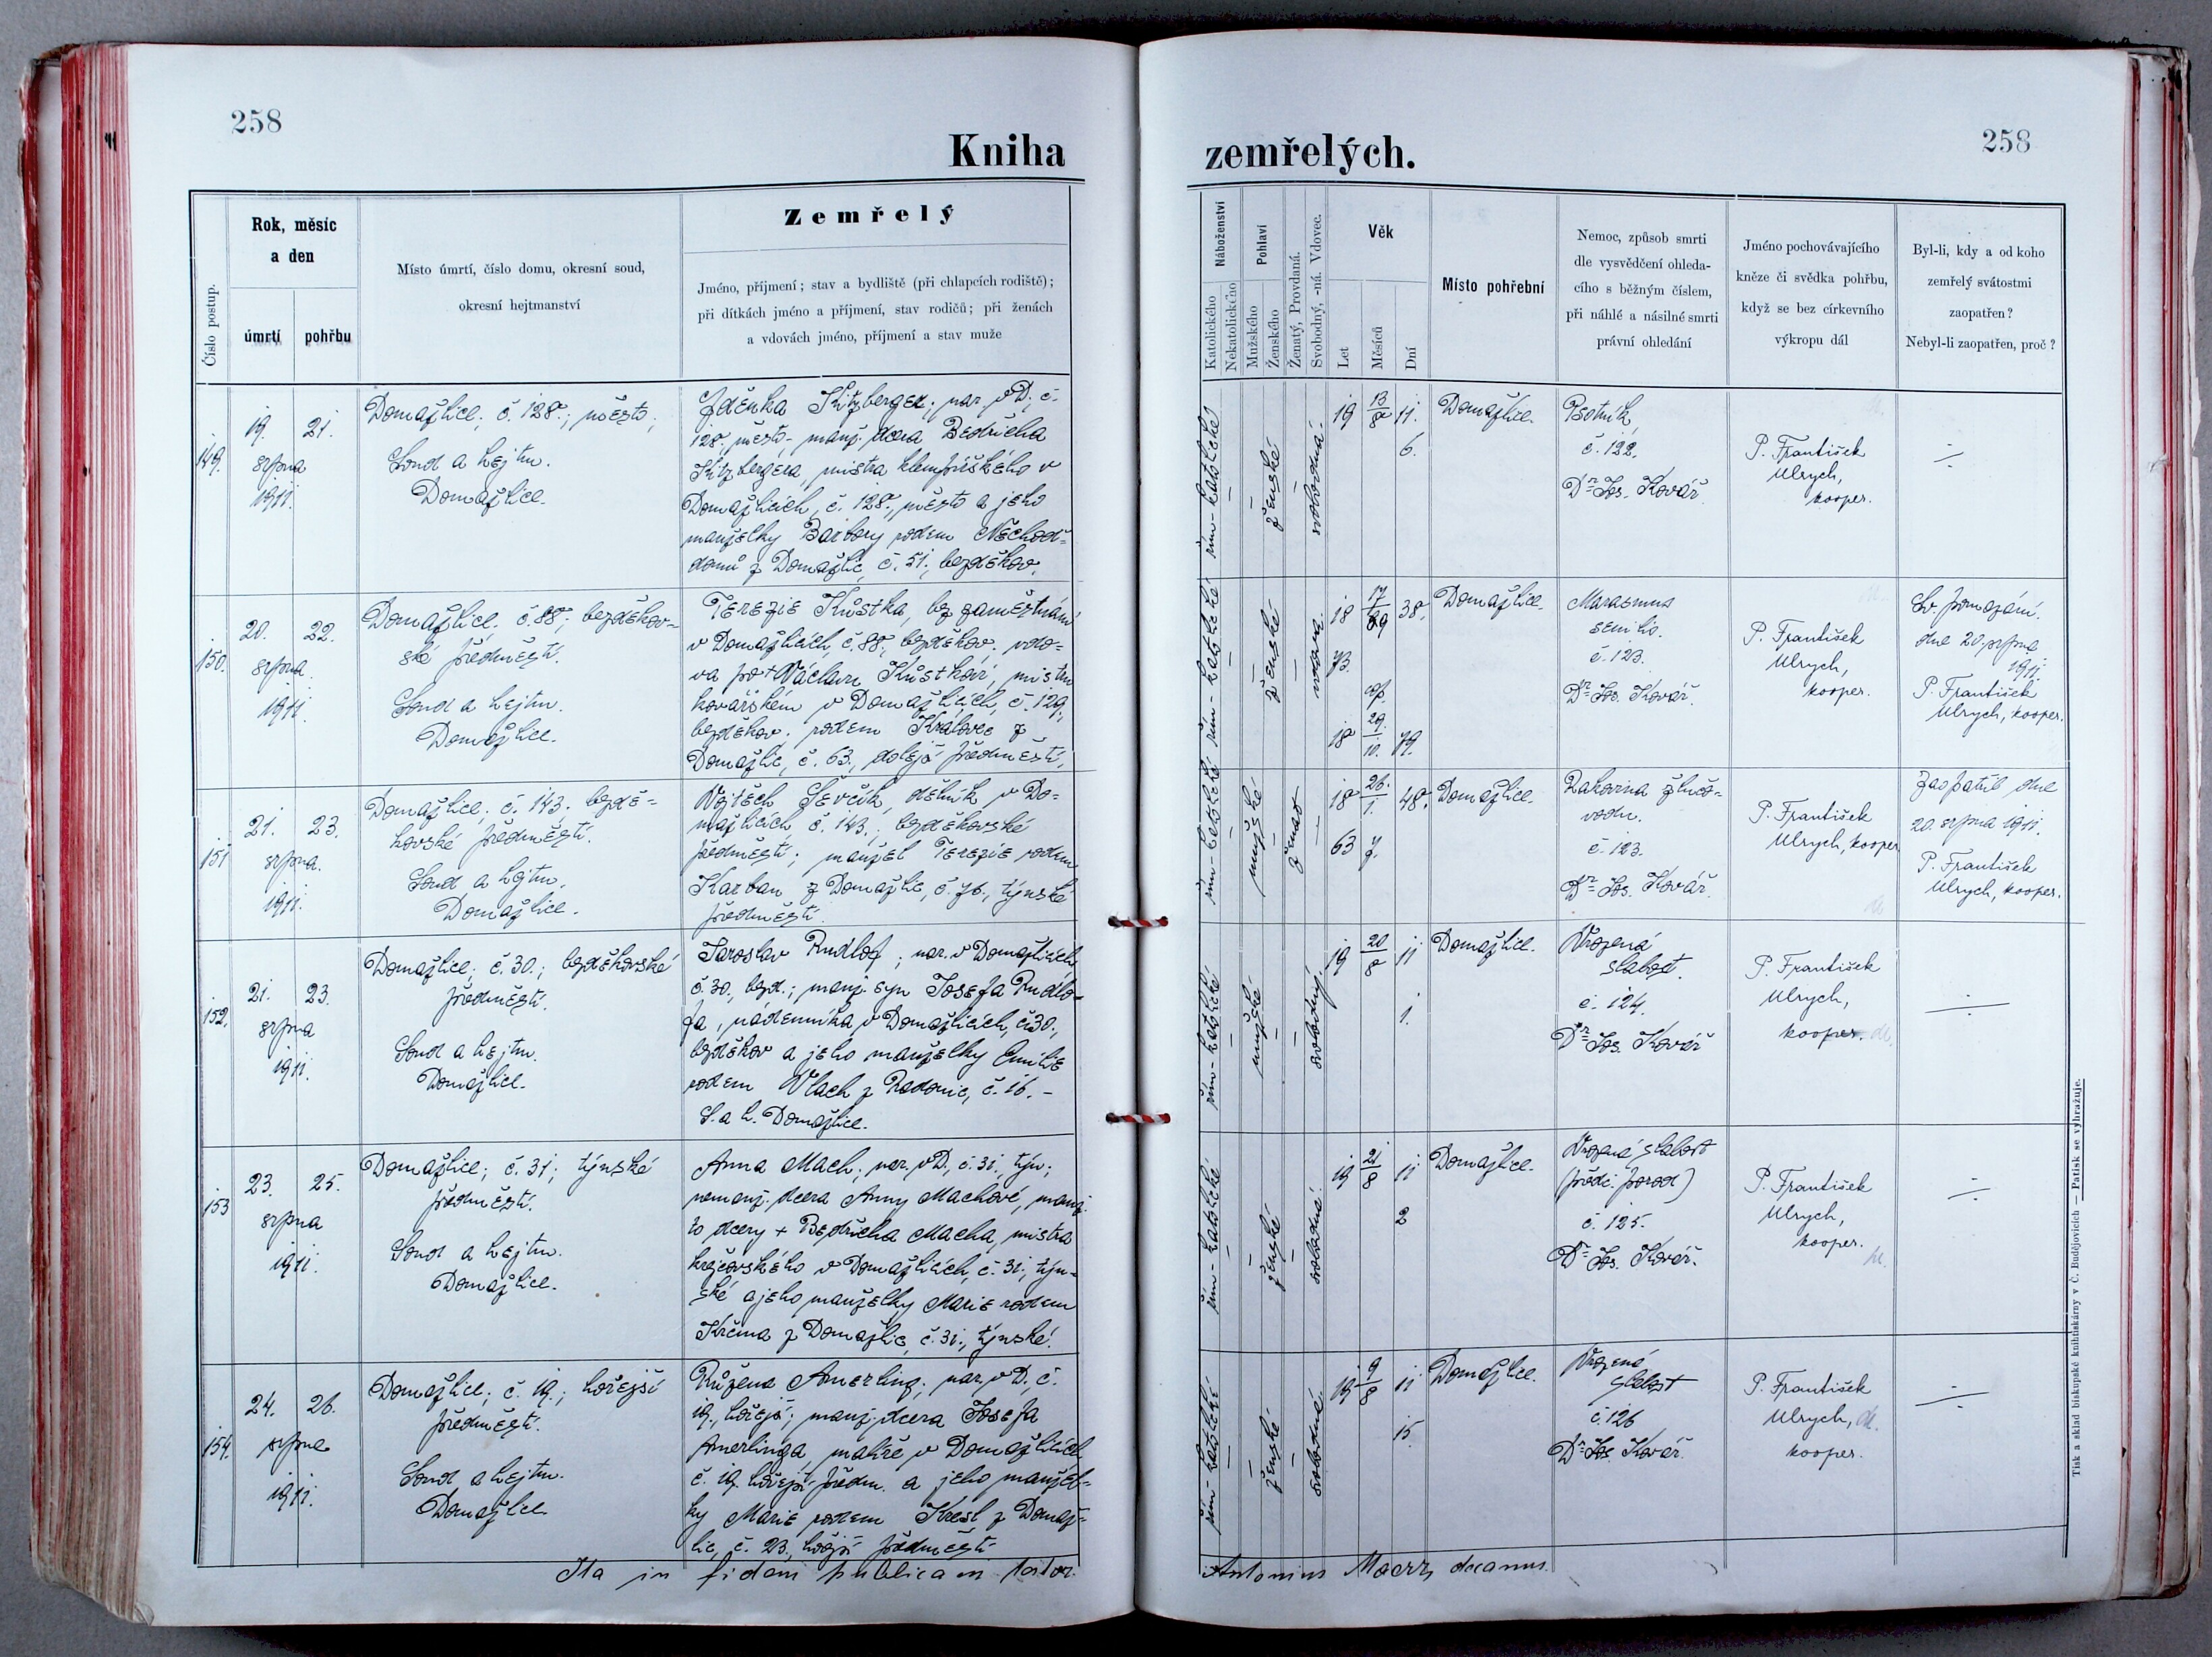 258
Kniha
zemřelých.
258
Číslo postup.
Rok, měsíc
a den
úmrtí
pohřbu
Místo úmrtí, číslo domu, okresní soud,
okresní hejtmanství
Zemřelý
Jméno, příjmení; stav a bydliště (při chlapcích rodiště);
při dítkách jméno a příjmení, stav rodičů; při ženách
a vdovách jméno, příjmení a stav muže
Náboženství
Katolického
Nekatolického
Pohlaví
Mužského
Ženského
Ženatý, Provdaná.
Svobodný, -ná. Vdovec.
Věk
Let
Měsíců
Dní
Místo pohřební
Nemoc, způsob smrti
dle vysvědčení ohleda-
cího s běžným číslem,
při náhlé a násilné smrti
právní ohledání
Jméno pochovávajícího
kněze či svědka pohřbu,
když se bez církevního
výkropu dál
Byl-li, kdy a od koho
zemřelý svátostmi
zaopatřen?
Nebyl-li zaopatřen, proč?
149.
19. 21.
srpna
1911.
Domažlice; č. 128.; město;
Soud a hejtm.
Domažlice.
Zdenka Kitzberger; nar. v D., č.
128., město- manž. dcera Bedřicha
Kitzbergera, mistra klempířského v
Domažlicích, č. 128., město a jeho
manželky Barbory rodem Nechod-
domů z Domažlic, č. 51., bezděkov.
řím- katolické
ženské
svobodná.
19 13/8 11.
6.
Domažlice.
Psotník,
č. 122.
Dr. Jos. Kovář.
P. František
Ulrych,
kooper.
150.
20. 22.
srpna.
1911.
Domažlice. č. 88.; bezděkov-
ské předměstí.
Soud a hejtm.
Domažlice.
Terezie Kůstka, bez zaměstnání
v Domažlicích, č. 88., bezděkov. vdo-
va po + Václavu Kůstkovi, mistru
kovářském v Domažlicích, č. 129.,
bezděkov. rodem Královec z
Domažlic, č. 63., dolejší předměstí.
řím- katolické
ženské
vdova.
18 17/9 38.
73.
18 29./10. 79.
Domažlice.
Marasmus
senilis.
č. 123.
Dr. Jos. Kovář.
P. František
Ulrych,
kooper.
Sv. pomazání.
dne 20. srpna
1911.
P. František
Ulrych, kooper.
151
21. 23.
srpna.
1911.
Domažlice; č. 143.; bezdě-
kovské předměstí.
Soud a hejtm.
Domažlice.
Vojtěch Ševčík, dělník v Do-
mažlicích, č. 143.; bezděkovské
předměstí; manžel Terezie rodem
Karban z Domažlic, č. 76., týnské
předměstí.
řím- katolické
mužské
ženat
18 26./1. 48.
63 7.
Domažlice.
Rakovina žlučo-
vodu.
č. 123.
Dr. Jos. Kovář.
P. František
Ulrych, kooper
Zaopatřil dne
20. srpna 1911.
P. František
Ulrych, kooper.
152.
21. 23.
srpna
1911.
Domažlice; č. 30.; bezděkovské
předměstí.
Soud a hejtm.
Domažlice.
Jaroslav Rudlof; nar. v Domažlicích,
č. 30., bezd.; manž. syn Josefa Rudlo-
fa, nádenníka v Domažlicích, č. 30.,
bezděkov a jeho manželky Emilie
rodem Vlach z Radonic, č. 16. -
S. a h. Domažlice.
řím- katolické
mužské
svobodný.
19 20/8 11
1.
Domažlice.
Vrozená
slabost.
č. 124.
Dr. Jos. Kovář
P. František
Ulrych,
kooper.
153
23. 25.
srpna
1911.
Domažlice; č. 31; týnské
předměstí.
Soud a hejtm.
Domažlice.
Anna Mach; nar. v D., č. 31., týn;
nemanž. dcera Anny Machové, manž.
to dcery + Bedřicha Macha, mistra
krejčovského v Domažlicích, č. 31., týn-
ské a jeho manželky Marie rodem
Krčma z Domažlic, č. 31., týnské.
řím- katolické
ženské
svobodná.
19 21/8 11
2
Domažlice.
Vrozená slabost
(předč. porod)
č. 125.
Dr. Jos. Kovář.
P. František
Ulrych,
kooper.
154.
24. 26.
srpna
1911.
Domažlice; č. 19.; hořejší
předměstí.
Soud a hejtm.
Domažlice.
Růžena Amerling; nar. v D., č.
19., hořejší; manž. dcera Josefa
Amerlinga, malíře v Domažlicích
č. 19. hořejší předm. a jeho manžel-
ky Marie rodem Kresl z Domaž-
lic, č. 23., hořejší předměstí
řím- katolické
ženské
svobodná.
19 9/8 11
15.
Domažlice.
Vrozená
slabost
č. 126
Dr. Jos. Kovář.
P. František
Ulrych,
kooper.
Ita in fidem publicam testor
Antonius Maerz, decanus.
Tisk a sklad biskupské knihtiskárny v Č. Budějovicích — Patisk se vyhražuje.